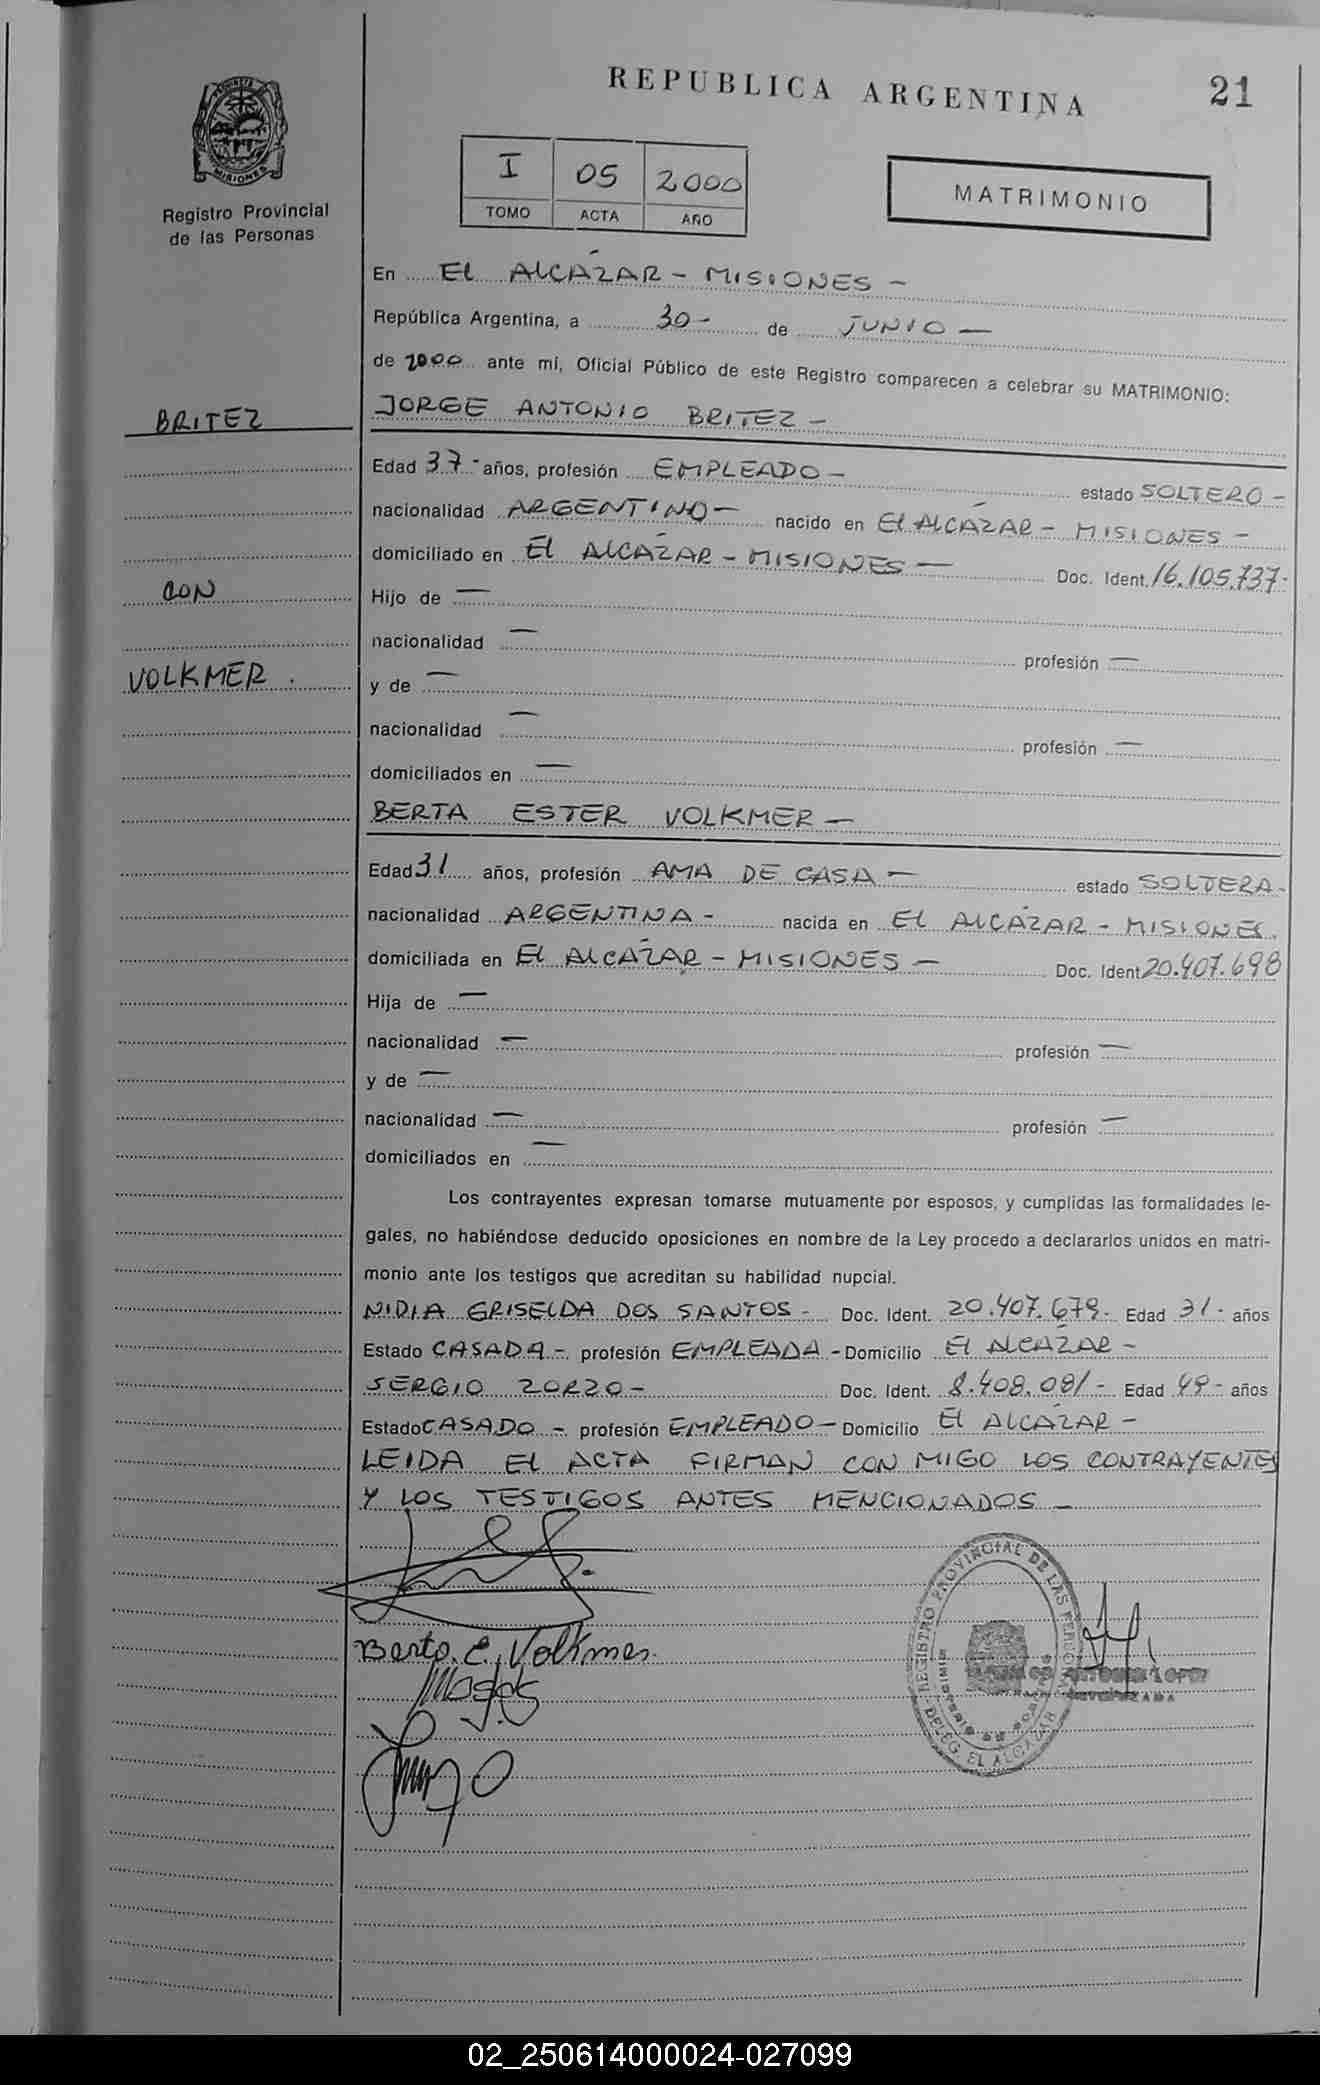 REPUBLICA ARGENTINA
21
PROVINCIA DE
MISIONES
Registro Provincial
de las Personas
I 05 2000
TOMO ACTA AÑO
MATRIMONIO
En El ALCÁZAR - MISIONES -
República Argentina, a 30 - de JUNIO -
de 2000 ante mí, Oficial Público de este Registro comparecen a celebrar su MATRIMONIO:
BRITEZ
JORGE ANTONIO BRITEZ -
Edad 37 - años, profesión EMPLEADO - estado SOLTERO -
nacionalidad ARGENTINO - nacido en El ALCÁZAR - MISIONES -
domiciliado en El ALCÁZAR - MISIONES - Doc. Ident. 16.105.737-
CON
Hijo de —
nacionalidad — profesión —
VOLKMER.
y de —
nacionalidad — profesión —
domiciliados en —
BERTA ESTER VOLKMER -
Edad 31 años, profesión AMA DE CASA - estado SOLTERA -
nacionalidad ARGENTINA - nacida en El ALCÁZAR - MISIONES.
domiciliada en El ALCÁZAR - MISIONES - Doc. Ident 20.407.698
Hija de —
nacionalidad — profesión —
y de —
nacionalidad — profesión —
domiciliados en —
Los contrayentes expresan tomarse mutuamente por esposos, y cumplidas las formalidades le-
gales, no habiéndose deducido oposiciones en nombre de la Ley procedo a declararlos unidos en matri-
monio ante los testigos que acreditan su habilidad nupcial.
NIDIA GRISELDA DOS SANTOS - Doc. Ident. 20.407.679. Edad 31 - años
Estado CASADA - profesión EMPLEADA - Domicilio El ALCÁZAR -
SERGIO ZORZO - Doc. Ident. 8.408.081 - Edad 49 - años
Estado CASADO - profesión EMPLEADO - Domicilio El ALCÁZAR -
LEIDA El ACTA FIRMAN CON MIGO LOS CONTRAYENTES
Y LOS TESTIGOS ANTES MENCIONADOS -
Berta. E. Volkmer.
REGISTRO PROVINCIAL DE LAS PERSONAS
MINISTERIO DE GOBIERNO
DELEG. EL ALCAZAR
ANTONIO LOPEZ
02_250614000024-027099